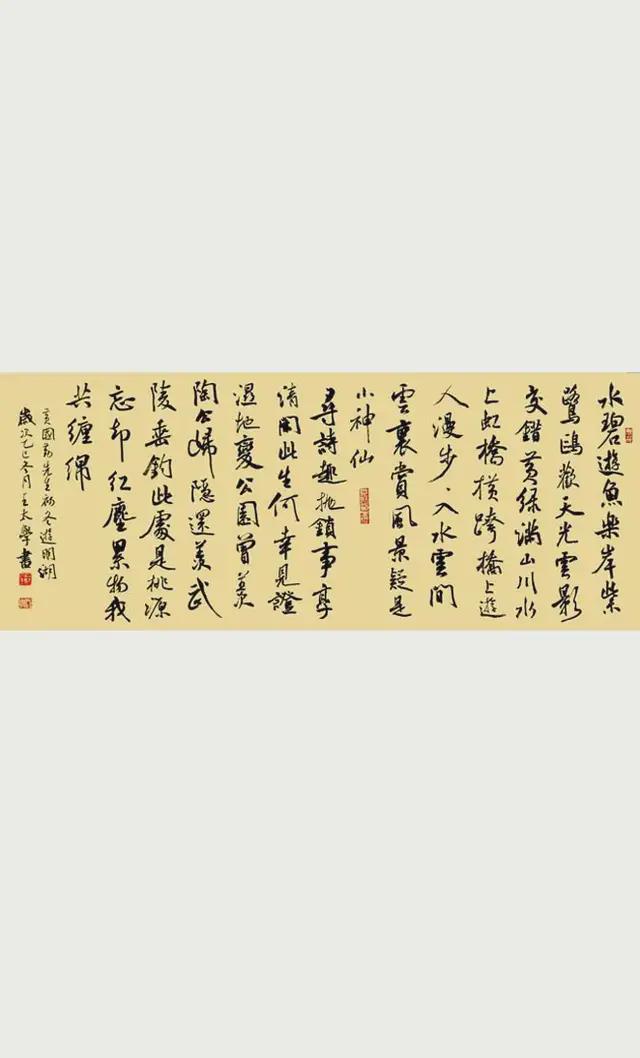 水碧遊魚樂岸柴
鷺鷗歡天光雲影
交錯黃绿滿山川水
上虹橋横跨橋上遊
人漫步入水雲間
雲裏賞風景疑是
小神仙
尋詩趣拋鎖事享
清閑此生何幸見證
濕地變公園曾羨
陶公歸隱還羨武
陵垂釣此處是桃源
忘却紅塵累物我
共纏綿
黃國 先生初冬遊 湖
歲次乙巳冬月王太學書